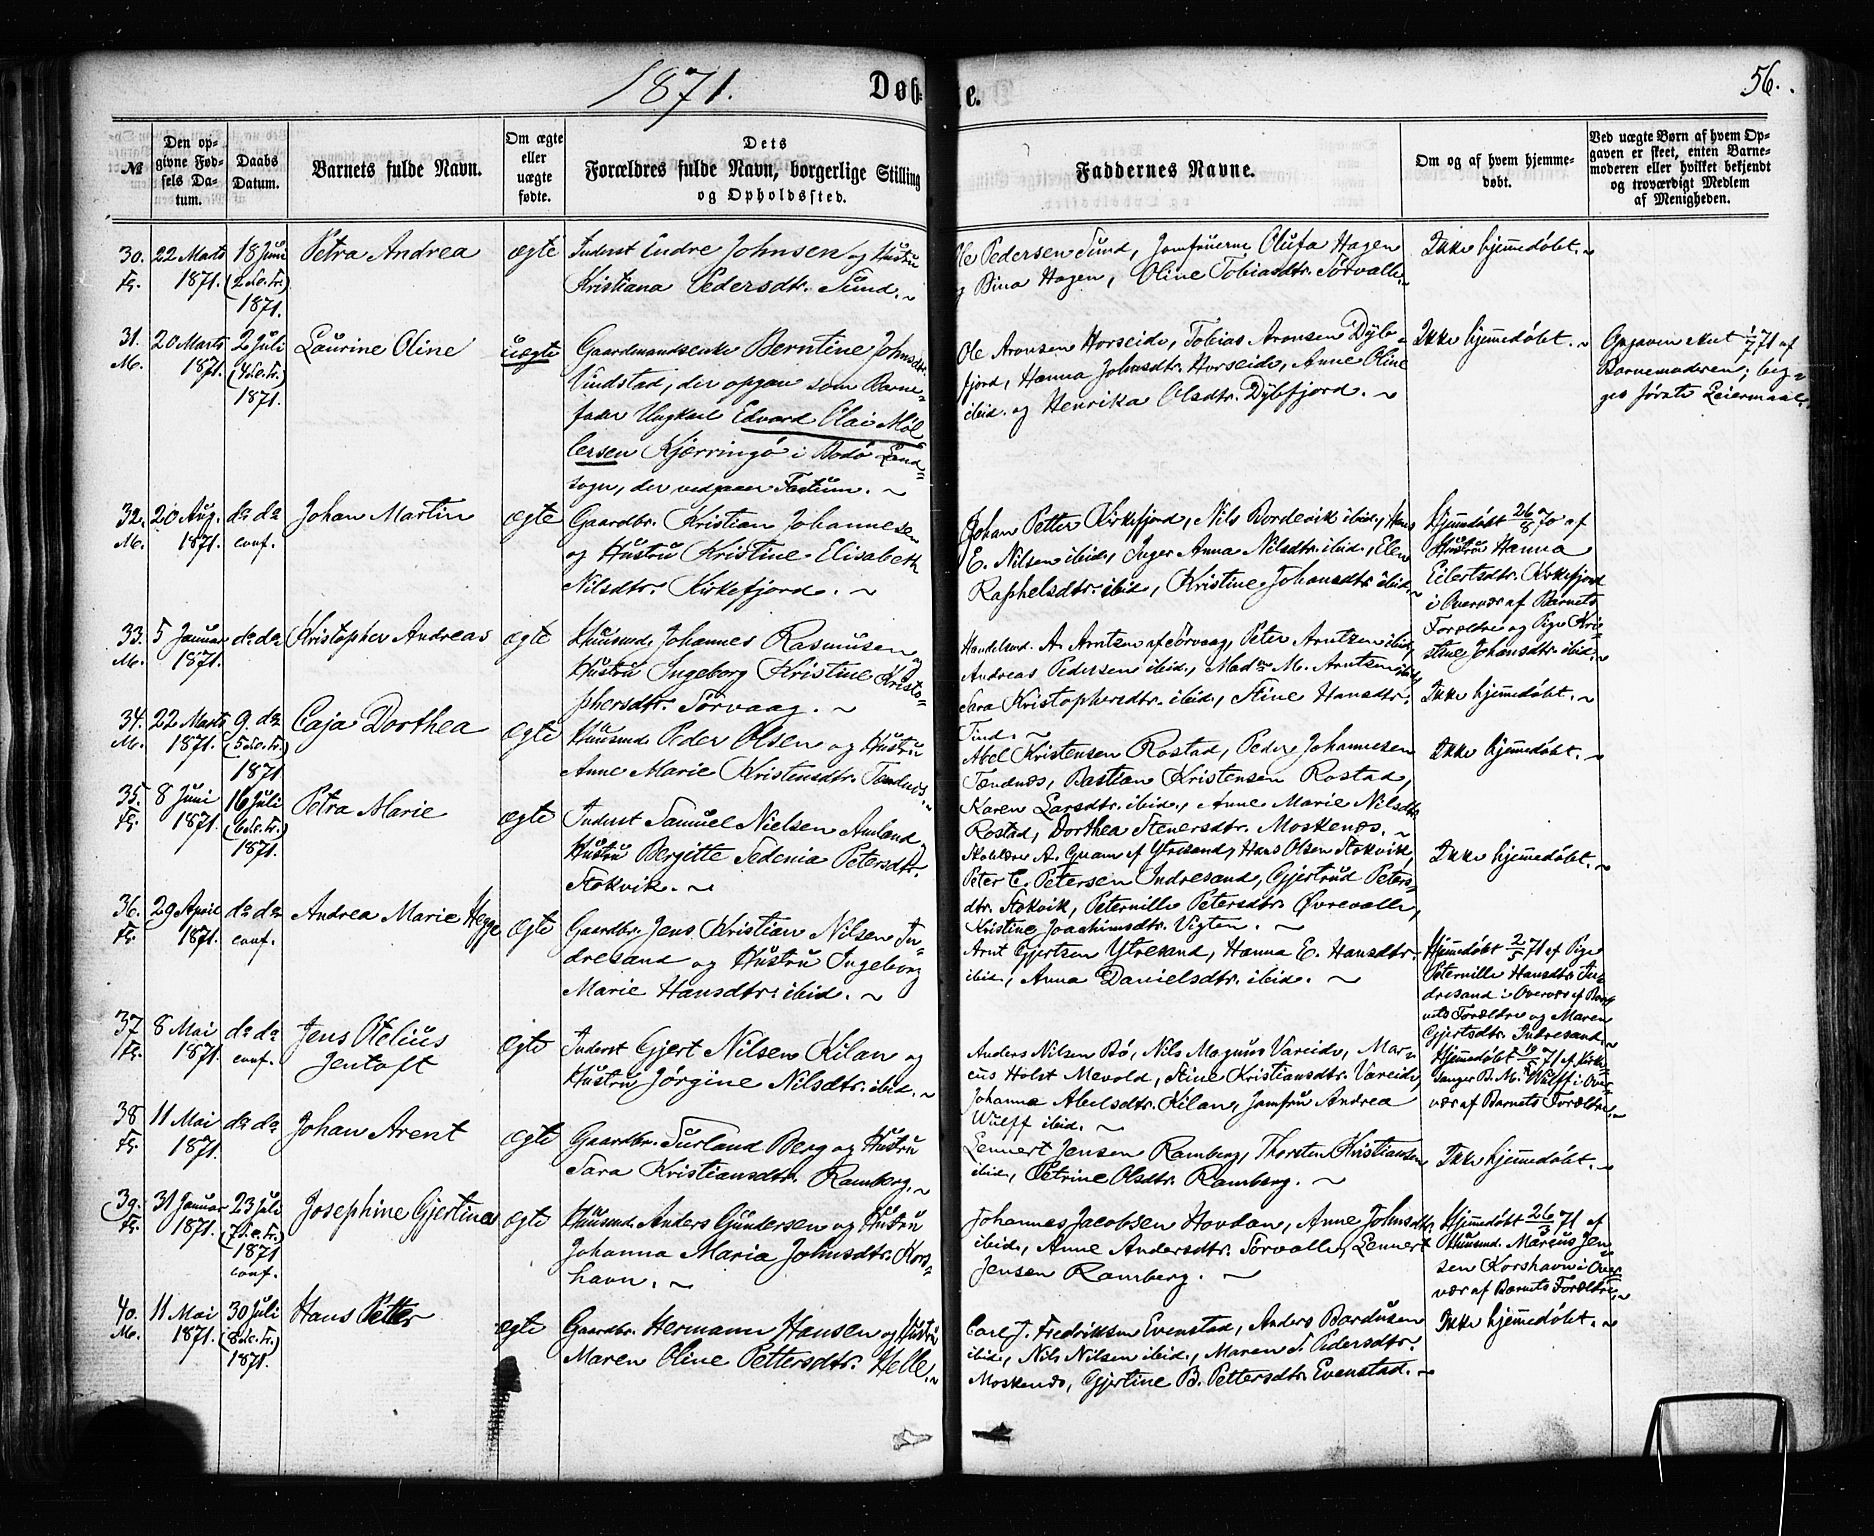 1871.
Døb-
e.
56.
№
Den op-
givne Fød-
sels Da-
tum.
Daabs
Datum.
Barnets fulde Navn.
Om ægte
eller
uægte
fødte.
Dets
Forældres fulde Navn, borgerlige Stilling
og Opholdssted.
Faddernes Navne.
Om og af hvem hjemme-
døbt.
Ved uægte Børn af hvem Op-
gaven er skeet, enten Barne-
moderen eller hvilket bekjendt
og troværdigt Medlem
af Menigheden.
30.
22 Marts
1871.
18 Juni
(2 S. e. Tr.)
1871.
Petra Andrea
ægte
Inderst Endre Johnsen og Hustru
Kristiana Pedersdtr. Sund.
Ole Pedersen Sund, Jomfruerne Olufa Hagen
og Bina Hagen, Oline Tobiasdtr. Sørvalle.
Ikke hjemmedøbt.
31.
M.
20 Marts
1871.
2 Juli
(4 S. e. Tr.)
1871.
Laurine Oline
uægte
Gaardmandsenke Berntine Johnsdtr.
Vindstad, der opgav som Barne-
fader Ungkarl Edvard Olai Møl-
lersen Kjærringø i Bodø Land-
sogn, der vedgaaer Factum.
Ole Aronsen Horseide, Tobias Aronsen Dybe-
fjord, Hanna Johnsdtr. Horseide, Anne Oline
ibid. og Henrika Olsdtr. Dybfjord.
Ikke hjemmedøbt.
Opgaven skeet 1/7 71 af
Barnemoderen; beg-
ges første Leiermaal.
32.
M.
20 Aug.
1871.
do do
conf.
Johan Martin
ægte
Gaardbr. Kristian Johannesen
og Hustru Kristine Elisabeth
Nilsdtr. Kirkefjord.
Johan Petter Kirkefjord, Nils Bordevik ibid., Hans
E. Nilsen ibid., Inger Anna Nilsdtr. ibid., Elen
Raphelsdtr. ibid., Kristine Johansdtr. ibid.
Hjemmedøbt 26/8 70 af
Hustru Hanna
Eilertsdtr. Kirkefjord
i Overvær af Barnets
Forældre og Pige Kri-
stine Johansdtr. ibid.
33.
M.
5 Januar
1871.
do do
Kristopher Andreas
ægte
Huusmd. Johannes Rasmusen og
Hustru Ingeborg Kristine Kristo-
phersdtr. Sørvaag.
Handelsmd. A. Arntzen af Sørvaag, Peter Arntzen ibid,
Andreas Pedersen ibid., Madme M. Arntzen ibid,
Sara Kristophersdtr. ibid., Stine Hansdtr.
Tind.
Ikke hjemmedøbt.
34.
M.
22 Marts
1871.
9. do
(5 S. e. Tr.)
1871
Caja Dorthea
ægte
Huusmd. Peder Olsen og Hustru
Anne Marie Kristensdtr. Tendnes.
Abel Kristensen Rostad, Peder Johannesen
Tendnes, Bastian Kristensen Rostad,
Karen Larsdtr. ibid., Anne Marie Nilsdtr.
Rostad, Dorthea Stenersdtr. Moskenæs.
Ikke hjemmedøbt.
35.
8 Juni
1871.
16 Juli
(6 S. e. Tr.)
1871.
Petra Marie
ægte
Inderst Samuel Nielsen Amland og
Hustru Bergitte Sedenia Petersdtr.
Stokvik.
A. Qvam af Ytresand, Hans Olsen Stokvik,
Peter C. Petersen Indresand, Gjertrud Peters-
dtr. Stokvik, Peternille Petersdtr. Øvrevalle,
Kristine Joachimsdtr. Vigten.
Ikke hjemmedøbt.
36.
29 April
1871.
do do
conf.
Andrea Marie Hegge
ægte
Gaardbr. Jens Kristian Nilsen In-
dresand og Hustru Ingeborg
Marie Hansdtr. ibid.
Arnt Gjertsen Ytresand, Hanna E. Hansdtr.
ibid, Anna Danielsdtr. ibid.
Hjemmedøbt 2/5 71 af Pige
Peternille Hansdtr. In-
dresand i Overvær af Bar-
nets Forældre og Maren
Gjertsdtr. Indresand.
37
8 Mai
1871.
do do
conf.
Jens Otelius
Jentoft
ægte
Inderst Gjert Nilsen Kilan og
Hustru Jørgine Nilsdtr. ibid.
Anders Nilsen Bø, Nils Magnus Vareide, Mar-
cus Holst Mevold, Stine Kristiansdtr. Vareide,
Johanna Abelsdtr. Kilan, Jomfru Andrea
Wulff ibid.
Hjemmedøbt 71 af Kirke-
sanger B. M. Wulff i Over-
vær af Barnets Forældre.
38
11 Mai
1871.
do do
Johan Arent
ægte
Gaardbr. Surland Berg og Hustru
Sara Kristiansdtr. Ramberg.
Lennert Jensen Ramberg, Thorsten Kristiansen
ibid., Petrine Olsdtr. Ramberg.
Ikke hjemmedøbt.
39.
31 Januar
1871.
23 Juli
(7 S. e. Tr.)
1871
conf.
Josephine Gjertine
ægte
Huusmd. Anders Gundersen og Hustru
Johanna Maria Johnsdtr. Kors-
havn.
Johannes Jacobsen Hovdan, Anne Johnsdtr.
ibid., Anne Andersdtr. Sørvalle, Lennert
Jensen Ramberg.
Hjemmedøbt 26/3 71 af
Huusmd. Marcus Jen-
sen Korshavn i Over-
vær af Barnets Forældre.
40.
M.
11 Mai
1871.
30 Juli
(8 S. e. Tr.)
1871.
Hans Petter
ægte
Gaardbr. Hermann Hansen og Hustru
Maren Oline Pettersdtr. Helle.
Carl J. Fredriksen Evenstad, Anders Bardusen
ibid., Nils Nilsen ibid., Maren S. Pedersdtr.
Moskenæs, Gjertine B. Pettersdtr. Evenstad.
Ikke hjemmedøbt.